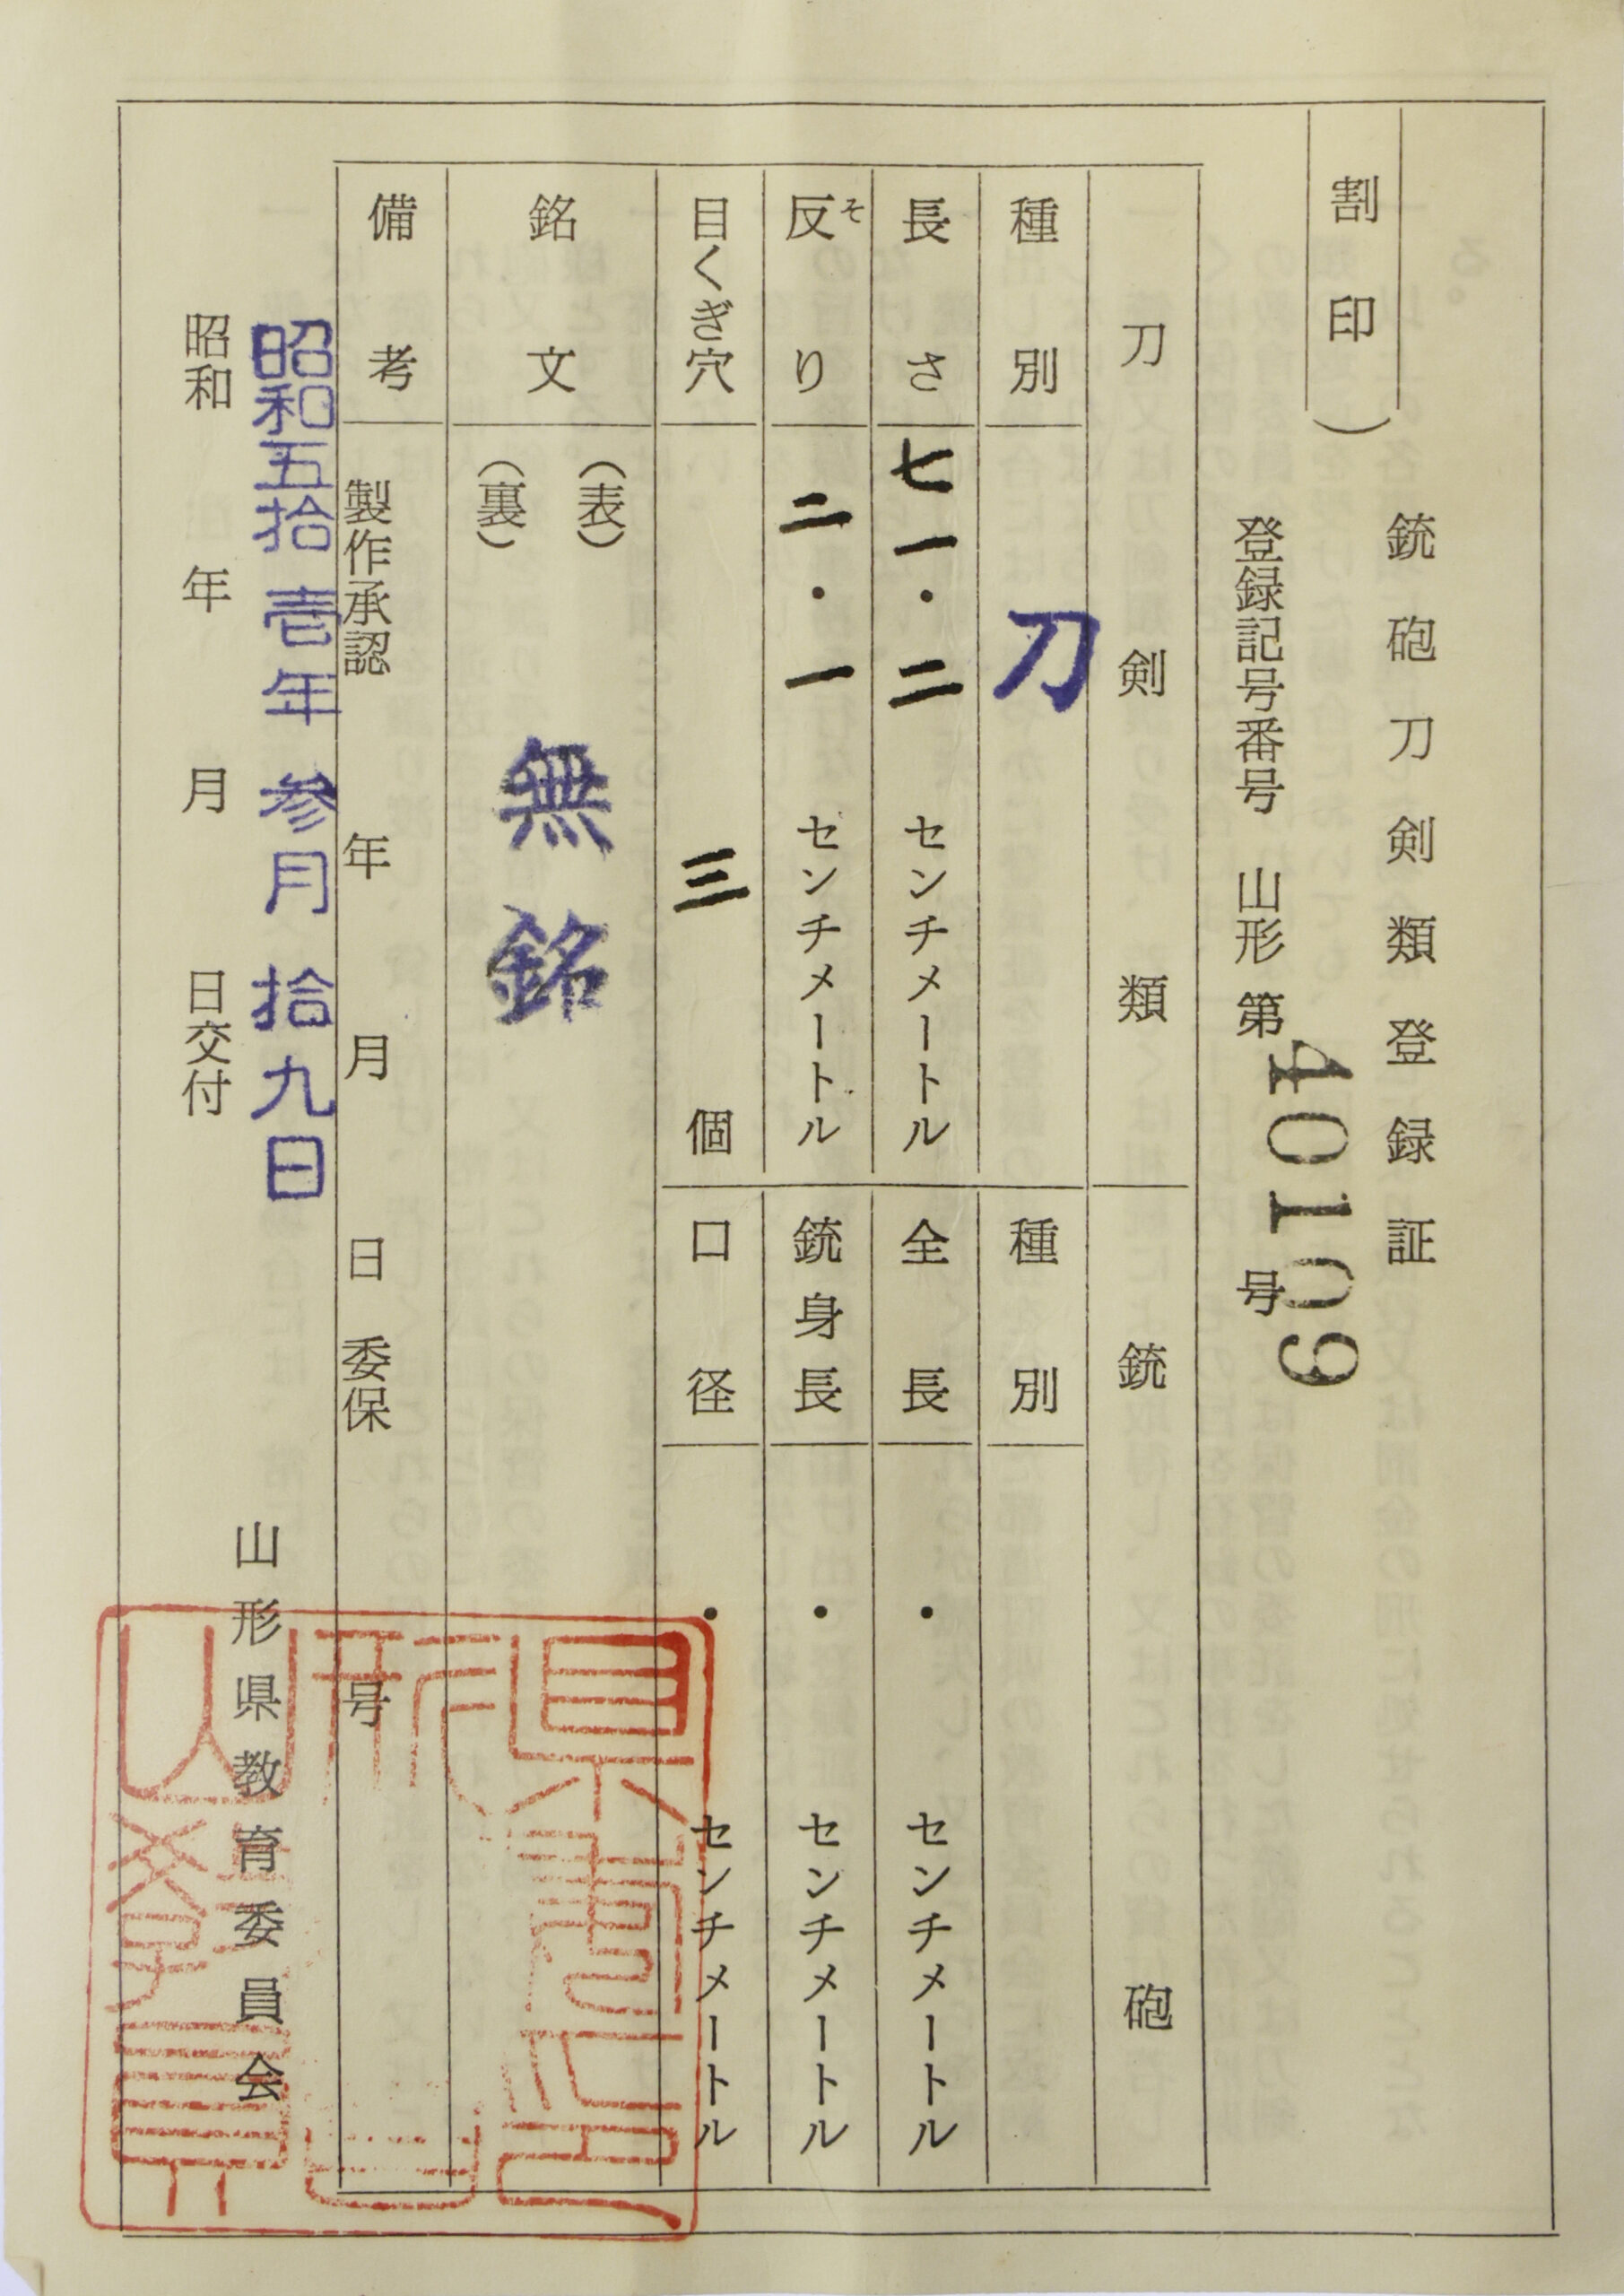 割印
銃砲刀剣類登録証
登録記号番号 山形 第 40109 号
刀剣類 銃砲
種別 刀 種別
長さ 七一・二 センチメートル 全長 ・ センチメートル
反り そ 二・一 センチメートル 銃身長 ・ センチメートル
目くぎ穴 三 個 口径 ・ センチメートル
銘文 (表)
(裏)
無銘
備考 製作承認 年 月 日 委保 号
昭和五拾壱年参月拾九日
昭和 年 月 日交付
山形県教育委員会